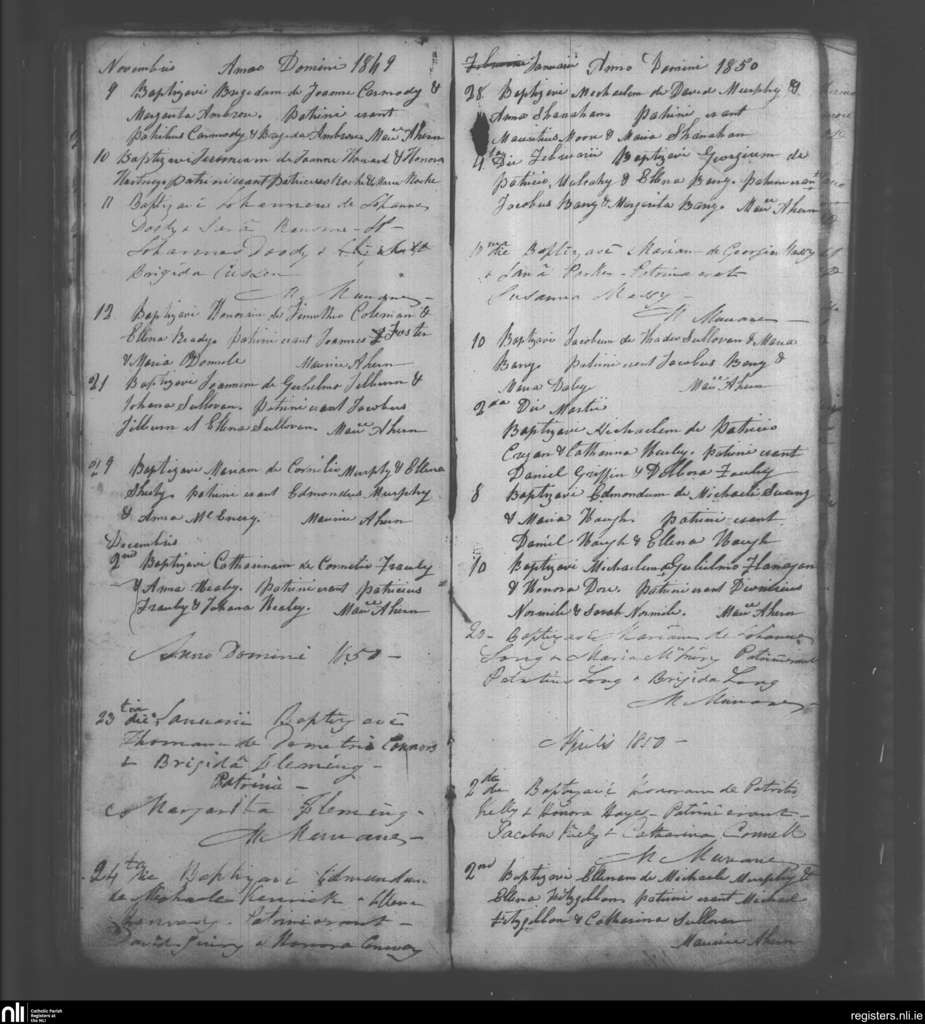 Novembris Anno Domini 1849
9 Baptizavi Brigidam de Joanne Carmody &
Margarita Ambrose. Patrini erant
Patritius Carmody & Brigida Ambrose Mauce Ahern
10 Baptizavi Jeremiam de Joanne Howard & Honora
Hartney patrini erant Patricius Roche & Maria Roche
11 Baptizavi Johannem de Johanne
Dody &
Johannes Doody &
Brigida Cusson
M. Murnane
12 Baptizavi Honoram de Timotheo Coleman &
Ellena Brady. patrini erant Joannes Foster
& Maria Maurice Ahern
21 Baptizavi Joannem de Gulielmo Filburn &
Johana Sullovan. Patrini erant Jacobus
Filburn et Ellena Sullovan. Mauce Ahern
Baptizavi Mariam de Cornelio Murphy & Ellena
Sheehy. patrini erant Edmondus Murphy
& Anna McEnery. Maurice Ahern
Decembris
2nd Baptizavi Catharinam de Cornelio Frauly
& Anna Healy. Patrini erant Patricius
Frauly & Johana Healy. Mauce Ahern
Anno Domini 1850 —
23 tia die Januarii Baptizavi
Thomam de Demetrio Connors
& Brigidâ Fleming —
Patrini —
Margarita Fleming.
M Murnane —
24 ta die Baptizavi Edmundum
de Michaele Kenrick & Ellena
Patrini erant —
David & Honora Conway
Januarii Anno Domini 1850
28 Baptizavi Michaelem de David Murphy &
Anna Shanahan. patrini erant
Mauritius Moore & Maria Shanahan
4ta Die Februarii Baptizavi Georgium de
Patricio Mulcahy & Ellena Barry. Patrini erant
Jacobus Barry & Margarita Barry. Mauce Ahern
die Baptizavi Mariam de Georgio Massy
& Parker. Patrina erat
Susanna Massy —
M Murnane —
10 Baptizavi Jacobum de Thadeo Sullovan & Maria
Barry. patrini erant Jacobus Barry &
Maria Daley Mauce Ahern
2da Die Martii
Baptizavi Michaelem de Patricio
& Catharina Hurly. patrini erant
Daniel Griffin & Frauly
8 Baptizavi Edmondum de Michaele
& Maria Waugh. patrini erant
Daniel Waugh & Ellena Waugh
10 Baptizavi Michaelem de Gulielmo Flanagan
& Honora Dore. patrini erant Dionisius
Normile & Sarah Normile. Mauce Ahern
20 — Baptizavi Mariam de Johanne
Long & Maria Patrini erant
Patritius Long & Brigida Long
M Murnane
Aprilis 1850 —
2da die Baptizavi Honoram de Patritio
Kelly & Honora Hayes — Patrini erant —
Jacobus Kiely & Catharina Connell
M Murnane
2nd Baptizavi Ellenam de Michaele Murphy &
Ellena Fitzgibbon. patrini erant Michael
Fitzgibbon & Catharina Sullovan
Maurice Ahern
nli Catholic Parish
Registers at
the NLI
registers.nli.ie